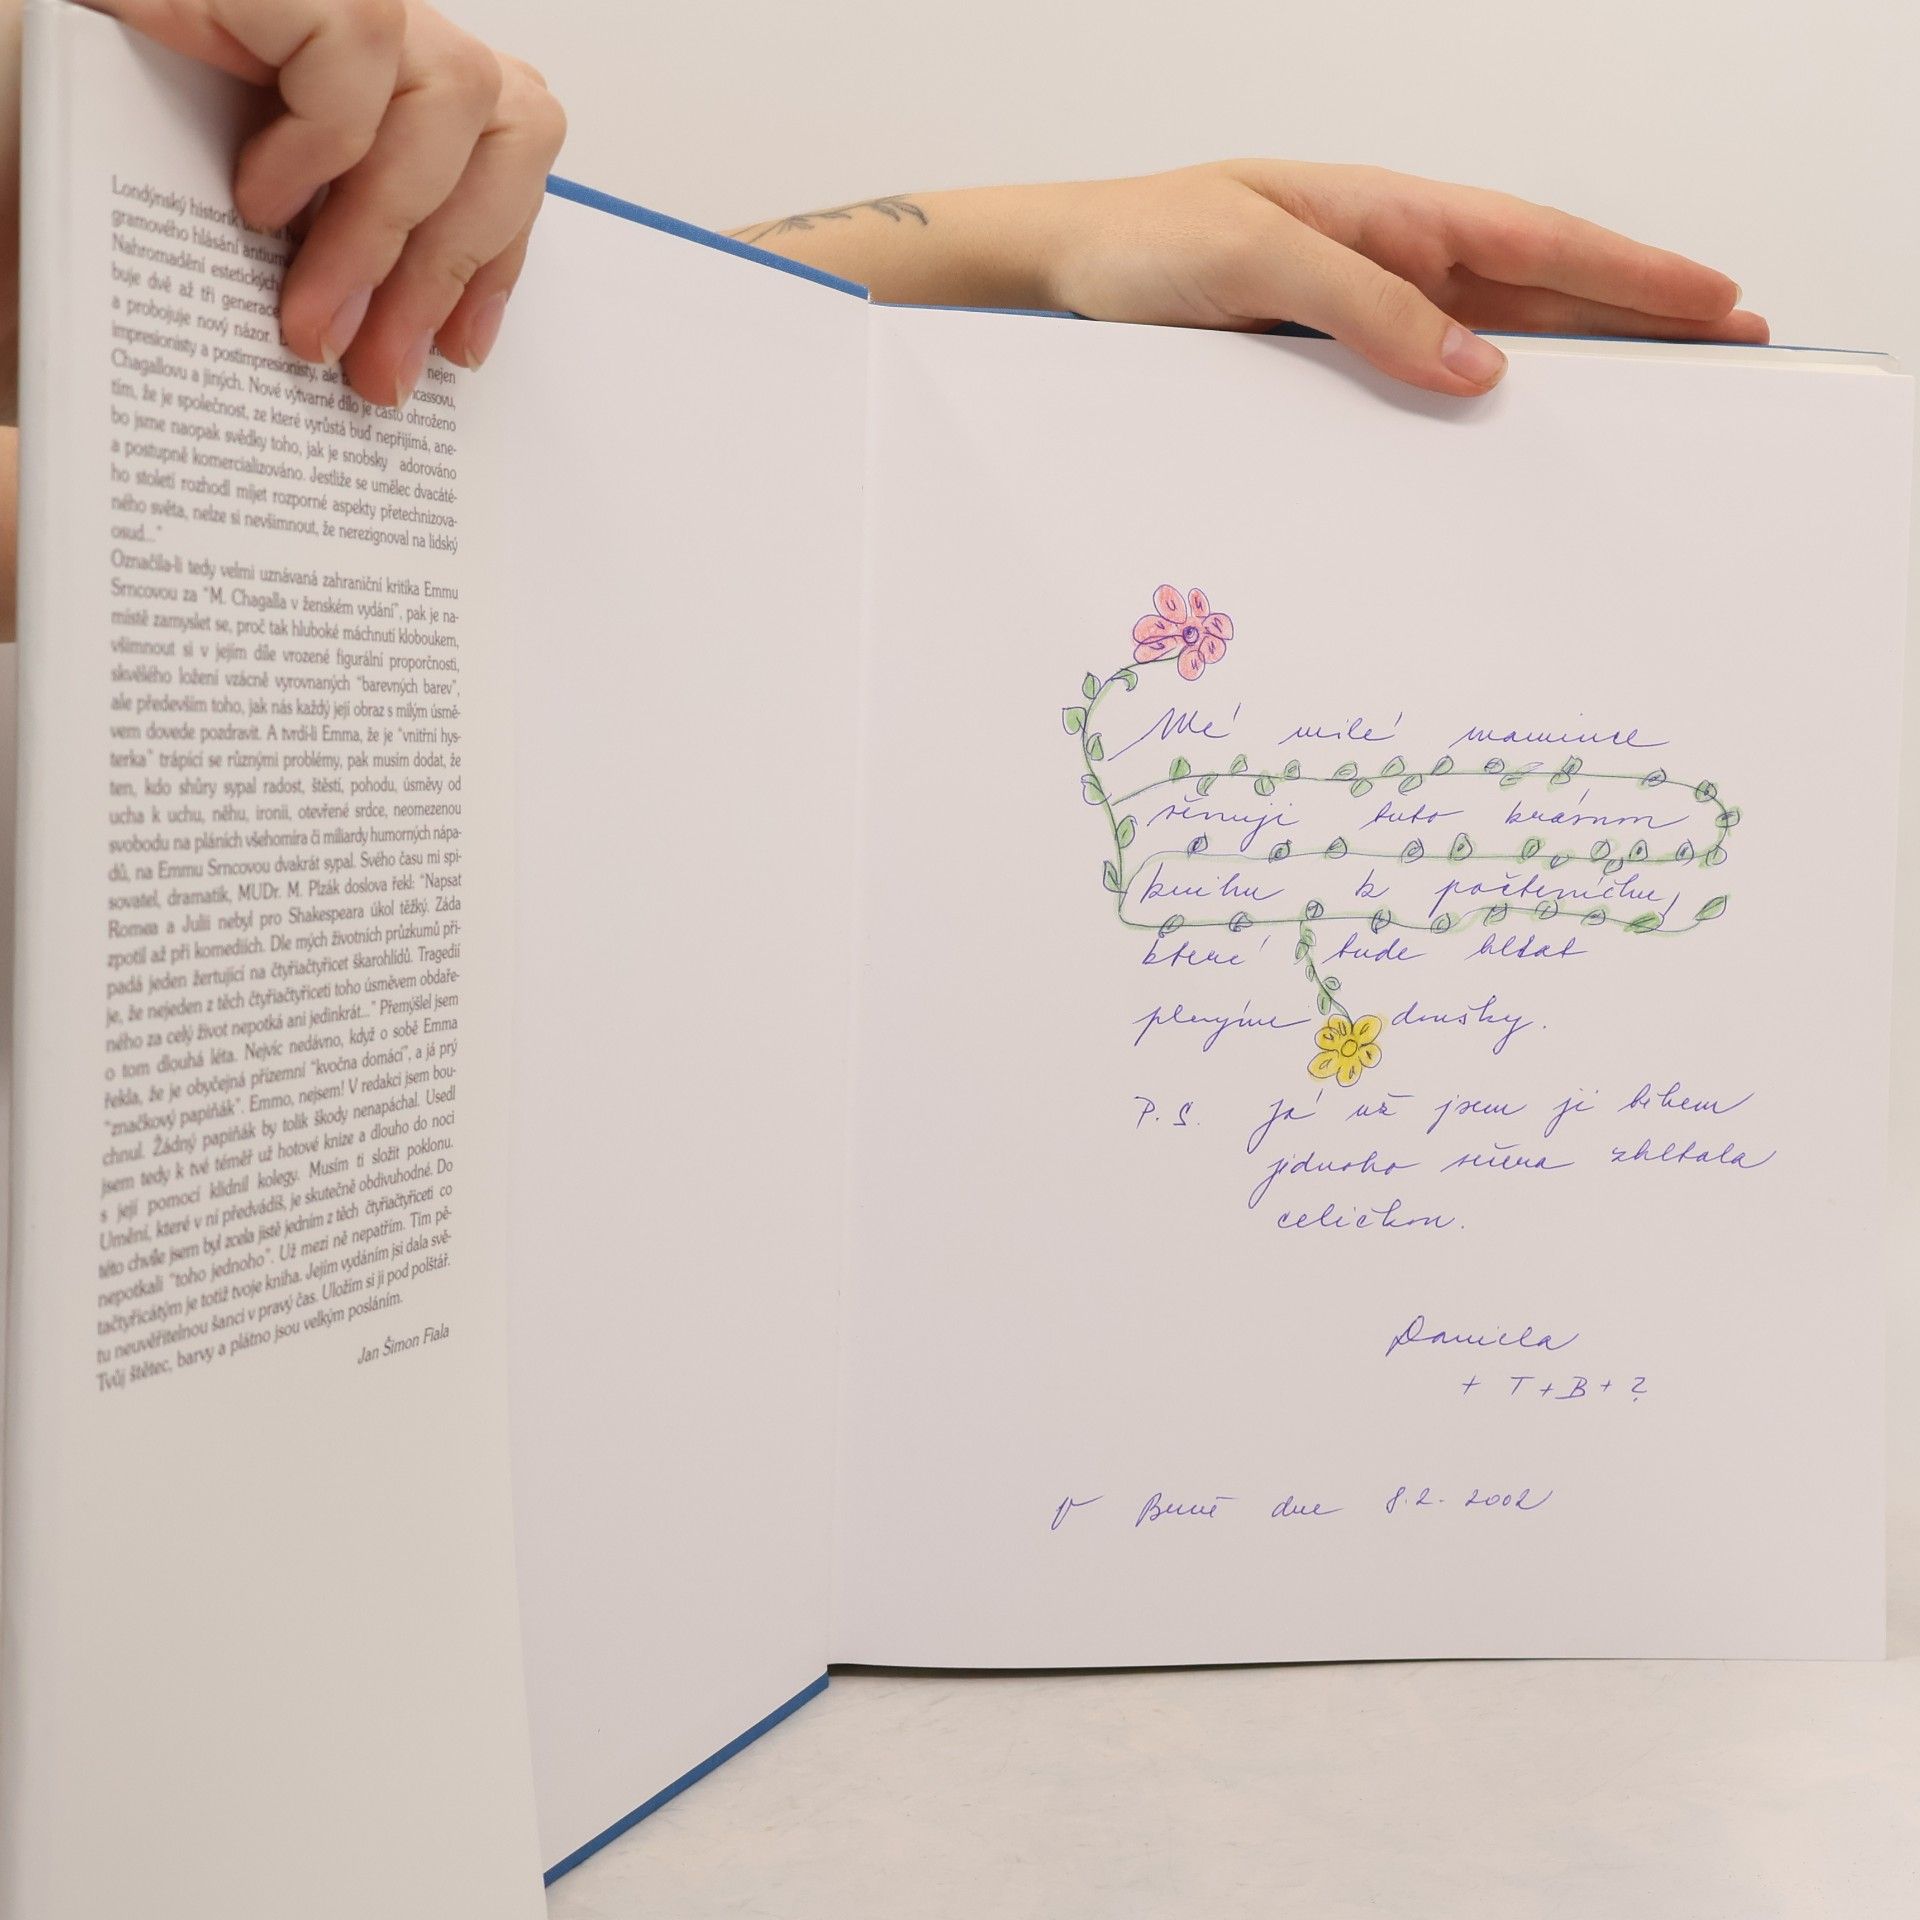 Londýnský historik
gramového hlásání antiumě
Nahromadění estetických
buje dvě až tři generace
a probojuje nový názor.
impresionisty a postimpresionisty, ale nejen
Chagallovu a jiných. Nové výtvarné dílo je často ohroženo
tím, že je společnost, ze které vyrůstá buď nepřijímá, ane-
bo jsme naopak svědky toho, jak je snobsky adorováno
a postupně komercializováno. Jestliže se umělec dvacáté-
ho století rozhodl míjet rozporné aspekty přetechnizova-
ného světa, nelze si nevšimnout, že nerezignoval na lidský
osud..."
Označila-li tedy velmi uznávaná zahraniční kritika Emmu
Srncovou za "M. Chagalla v ženském vydání", pak je na-
místě zamyslet se, proč tak hluboké máchnutí kloboukem,
všimnout si v jejím díle vrozené figurální proporčnosti,
skvělého ložení vzácně vyrovnaných "barevných barev",
ale především toho, jak nás každý její obraz s milým úsmě-
vem dovede pozdravit. A tvrdí-li Emma, že je "vnitřní hys-
terka" trápící se různými problémy, pak musím dodat, že
ten, kdo shůry sypal radost, štěstí, pohodu, úsměvy od
ucha k uchu, něhu, ironii, otevřené srdce, neomezenou
svobodu na pláních všehomíra či miliardy humorných nápa-
dů, na Emmu Srncovou dvakrát sypal. Svého času mi spi-
sovatel, dramatik, MUDr. M. Plzák doslova řekl: "Napsat
Romea a Julii nebyl pro Shakespeara úkol těžký. Záda
zpotil až při komediích. Dle mých životních průzkumů při-
padá jeden žertující na čtyřiačtyřicet škarohlídů. Tragedií
je, že nejeden z těch čtyřiačtyřiceti toho úsměvem obdaře-
ného za celý život nepotká ani jedinkrát..." Přemýšlel jsem
o tom dlouhá léta. Nejvíc nedávno, když o sobě Emma
řekla, že je obyčejná přízemní "kvočna domácí", a já prý
"značkový papiňák". Emmo, nejsem! V redakci jsem bou-
chnul. Žádný papiňák by tolik škody nenapáchal. Usedl
jsem tedy k tvé téměř už hotové knize a dlouho do noci
s její pomocí klidnil kolegy. Musím ti složit poklonu.
Umění, které v ní předvádíš, je skutečně obdivuhodné. Do
této chvíle jsem byl zcela jistě jedním z těch čtyřiačtyřiceti co
nepotkali "toho jednoho". Už mezi ně nepatřím. Tím pě-
tačtyřicátým je totiž tvoje kniha. Jejím vydáním jsi dala svě-
tu neuvěřitelnou šanci v pravý čas. Uložím si ji pod polštář.
Tvůj štětec, barvy a plátno jsou velkým posláním.
Jan Šimon Fiala
Mé milé mamince
věnuji tuto krásnou
knihu k počteníčku,
které bude hltat
plnými doušky.
P.S. Já už jsem ji během
jednoho večera zhltala
celičkou.
Daniela
+ T + B + ?
V Brně dne 8.2.2002